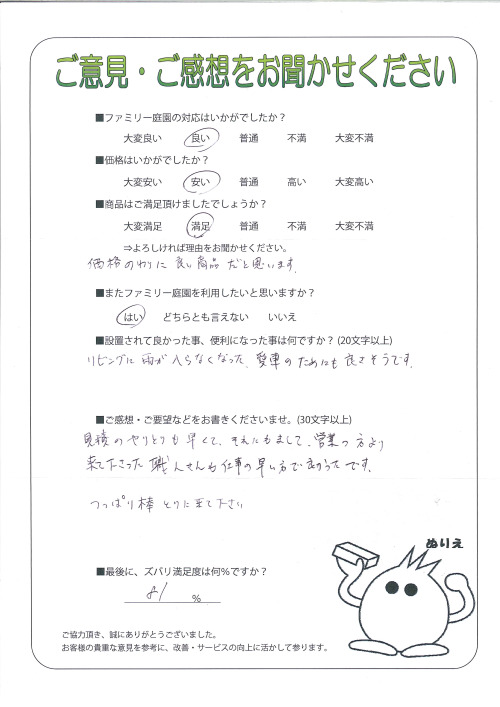 ご意見・ご感想をお聞かせください
■ファミリー庭園の対応はいかがでしたか？
大変良い 良い 普通 不満 大変不満
■価格はいかがでしたか？
大変安い 安い 普通 高い 大変高い
■商品はご満足頂けましたでしょうか？
大変満足 満足 普通 不満 大変不満
⇒よろしければ理由をお聞かせください。
価格のわりに良い商品だと思います。
■またファミリー庭園を利用したいと思いますか？
はい どちらとも言えない いいえ
■設置されて良かった事、便利になった事は何ですか？(20文字以上)
リビングに雨が入らなくなった、愛車のためにも良さそうです。
■ご感想・ご要望などをお書きくださいませ。(30文字以上)
見積のやりとりも早くて、それにもまして、営業の方より
来て下さった職人さんも仕事の早い方で良かったです。
つっぱり棒とりに来て下さい
ぬりえ
■最後に、ズバリ満足度は何％ですか？
81 %
ご協力頂き、誠にありがとうございました。
お客様の貴重な意見を参考に、改善・サービスの向上に活かして参ります。